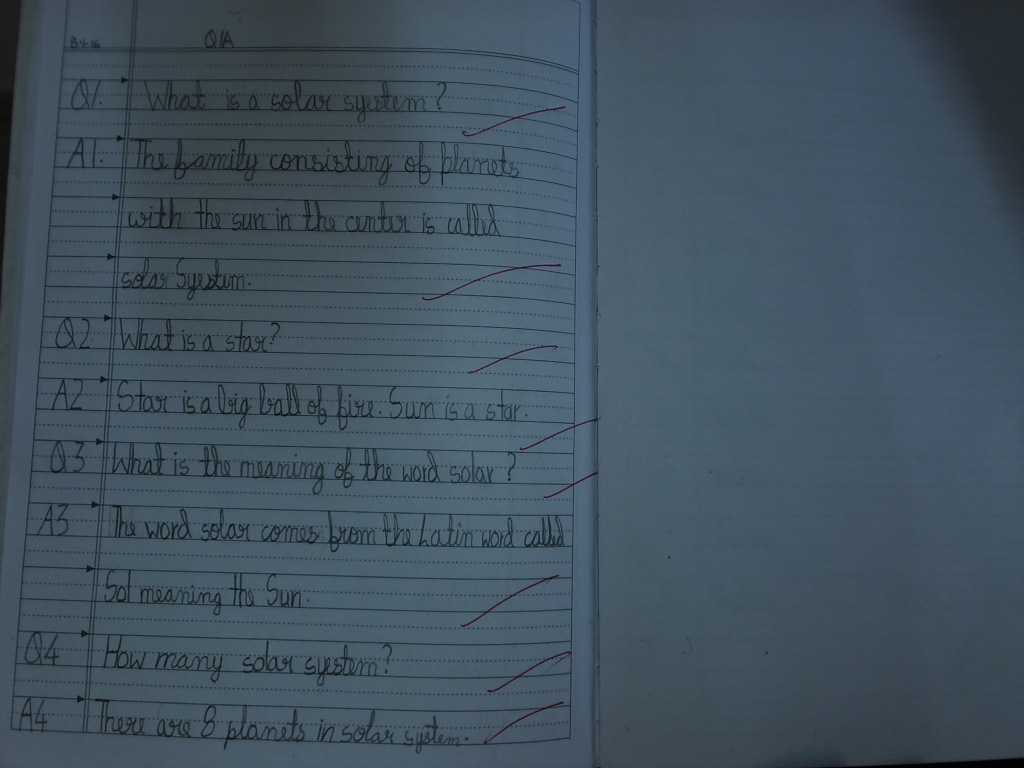 8-4-16 Q/A
Q1. What is a solar system?
A1. The family consisting of planets
with the sun in the center is called
solar System.
Q2 What is a star?
A2 Star is a big ball of fire. Sun is a star.
Q3 What is the meaning of the word solar?
A3 The word solar comes from the Latin word called
Sol meaning the Sun.
Q4 How many solar system?
A4 There are 8 planets in solar system.